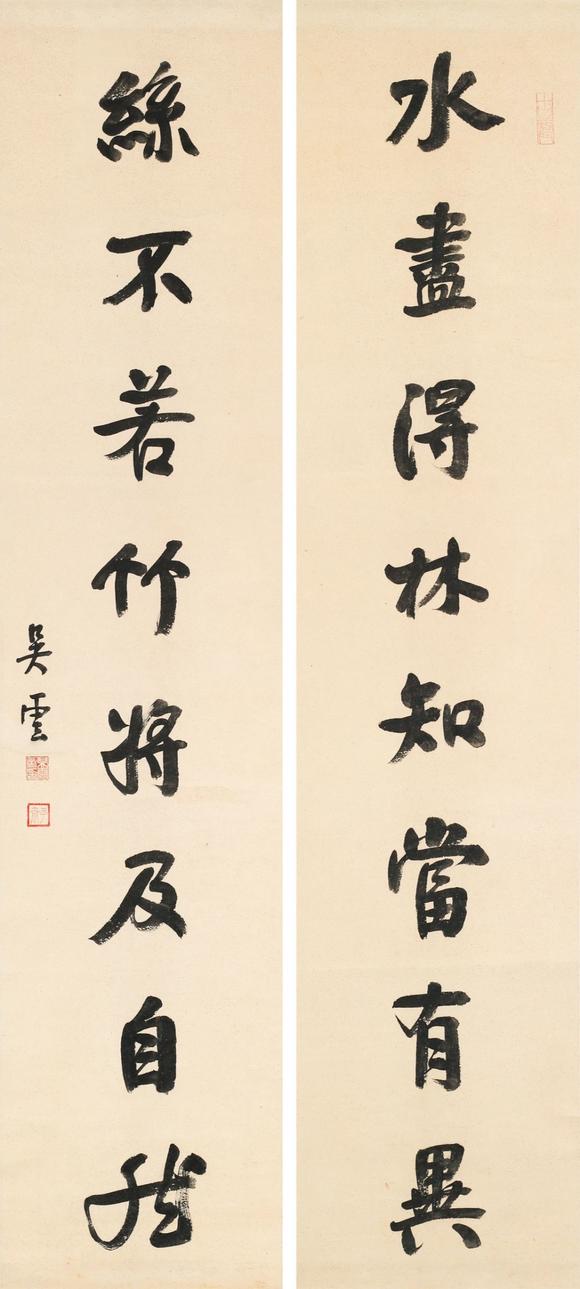 水盡得林知當有異
絲不若竹將及自然
吳雲